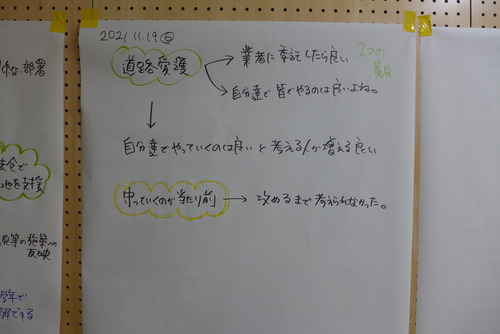 2021.11.19㊎
道路愛護
業者に委託したら良い
2つの
意見
自分達で皆でやるのは良いよね。
自分達でやっていくのは良いと考える人が増える良い
守っていくのが当たり前
攻めるまで考えられなかった。
係な部署
会で
地を支援
見等の施策への
反映
学年で
解できる